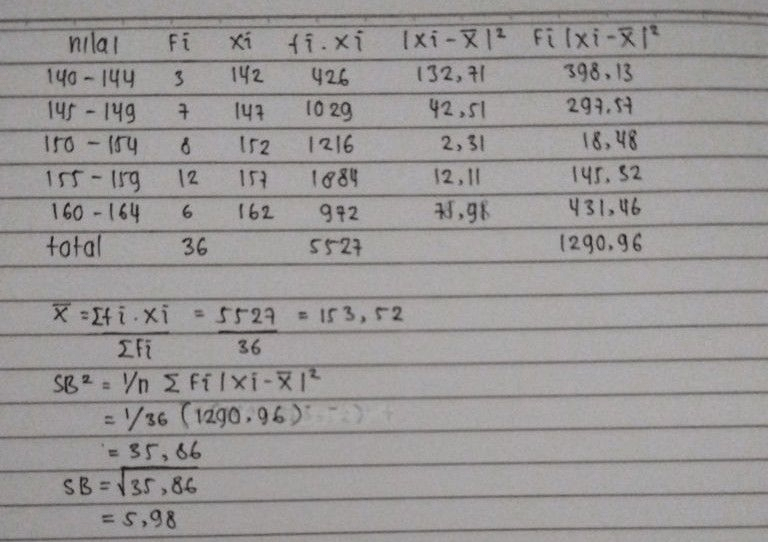 nilai Fi xi fi.xi |xi-x̄|² Fi|xi-x̄|²
140-144 3 142 426 132,71 398,13
145-149 7 147 1029 42,51 297,57
150-154 8 152 1216 2,31 18,48
155-159 12 157 1884 12,11 145,32
160-164 6 162 972 71,91 431,46
total 36 5527 1290,96
x̄ = Σfi.xi / Σfi = 5527 / 36 = 153,52
SB² = 1/n Σ Fi|xi-x̄|²
= 1/36 (1290,96)
= 35,86
SB = √35,86
= 5,98